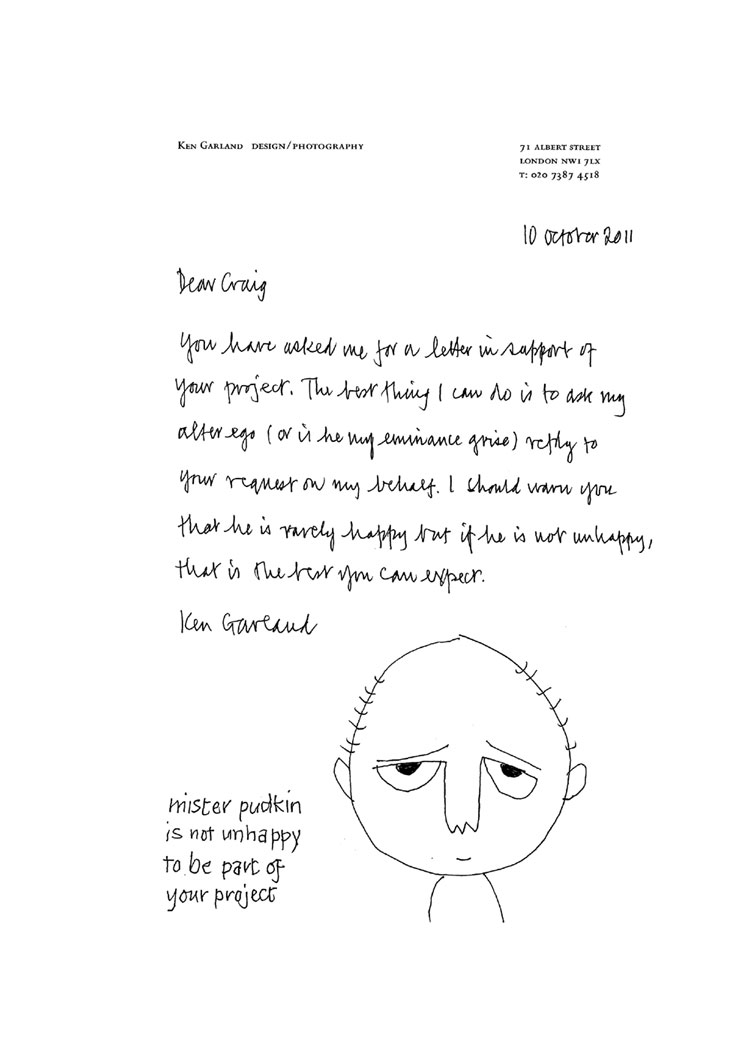 KEN GARLAND DESIGN/PHOTOGRAPHY
71 ALBERT STREET
LONDON NW1 7LX
T: 020 7387 4518
10 October 2011
Dear Craig
You have asked me for a letter in support of
your project. The best thing I can do is to ask my
alter ego (or is he my eminance grise) reply to
your request on my behalf. I should warn you
that he is rarely happy but if he is not unhappy,
that is the best you can expect.
Ken Garland
mister pudkin
is not unhappy
to be part of
your project